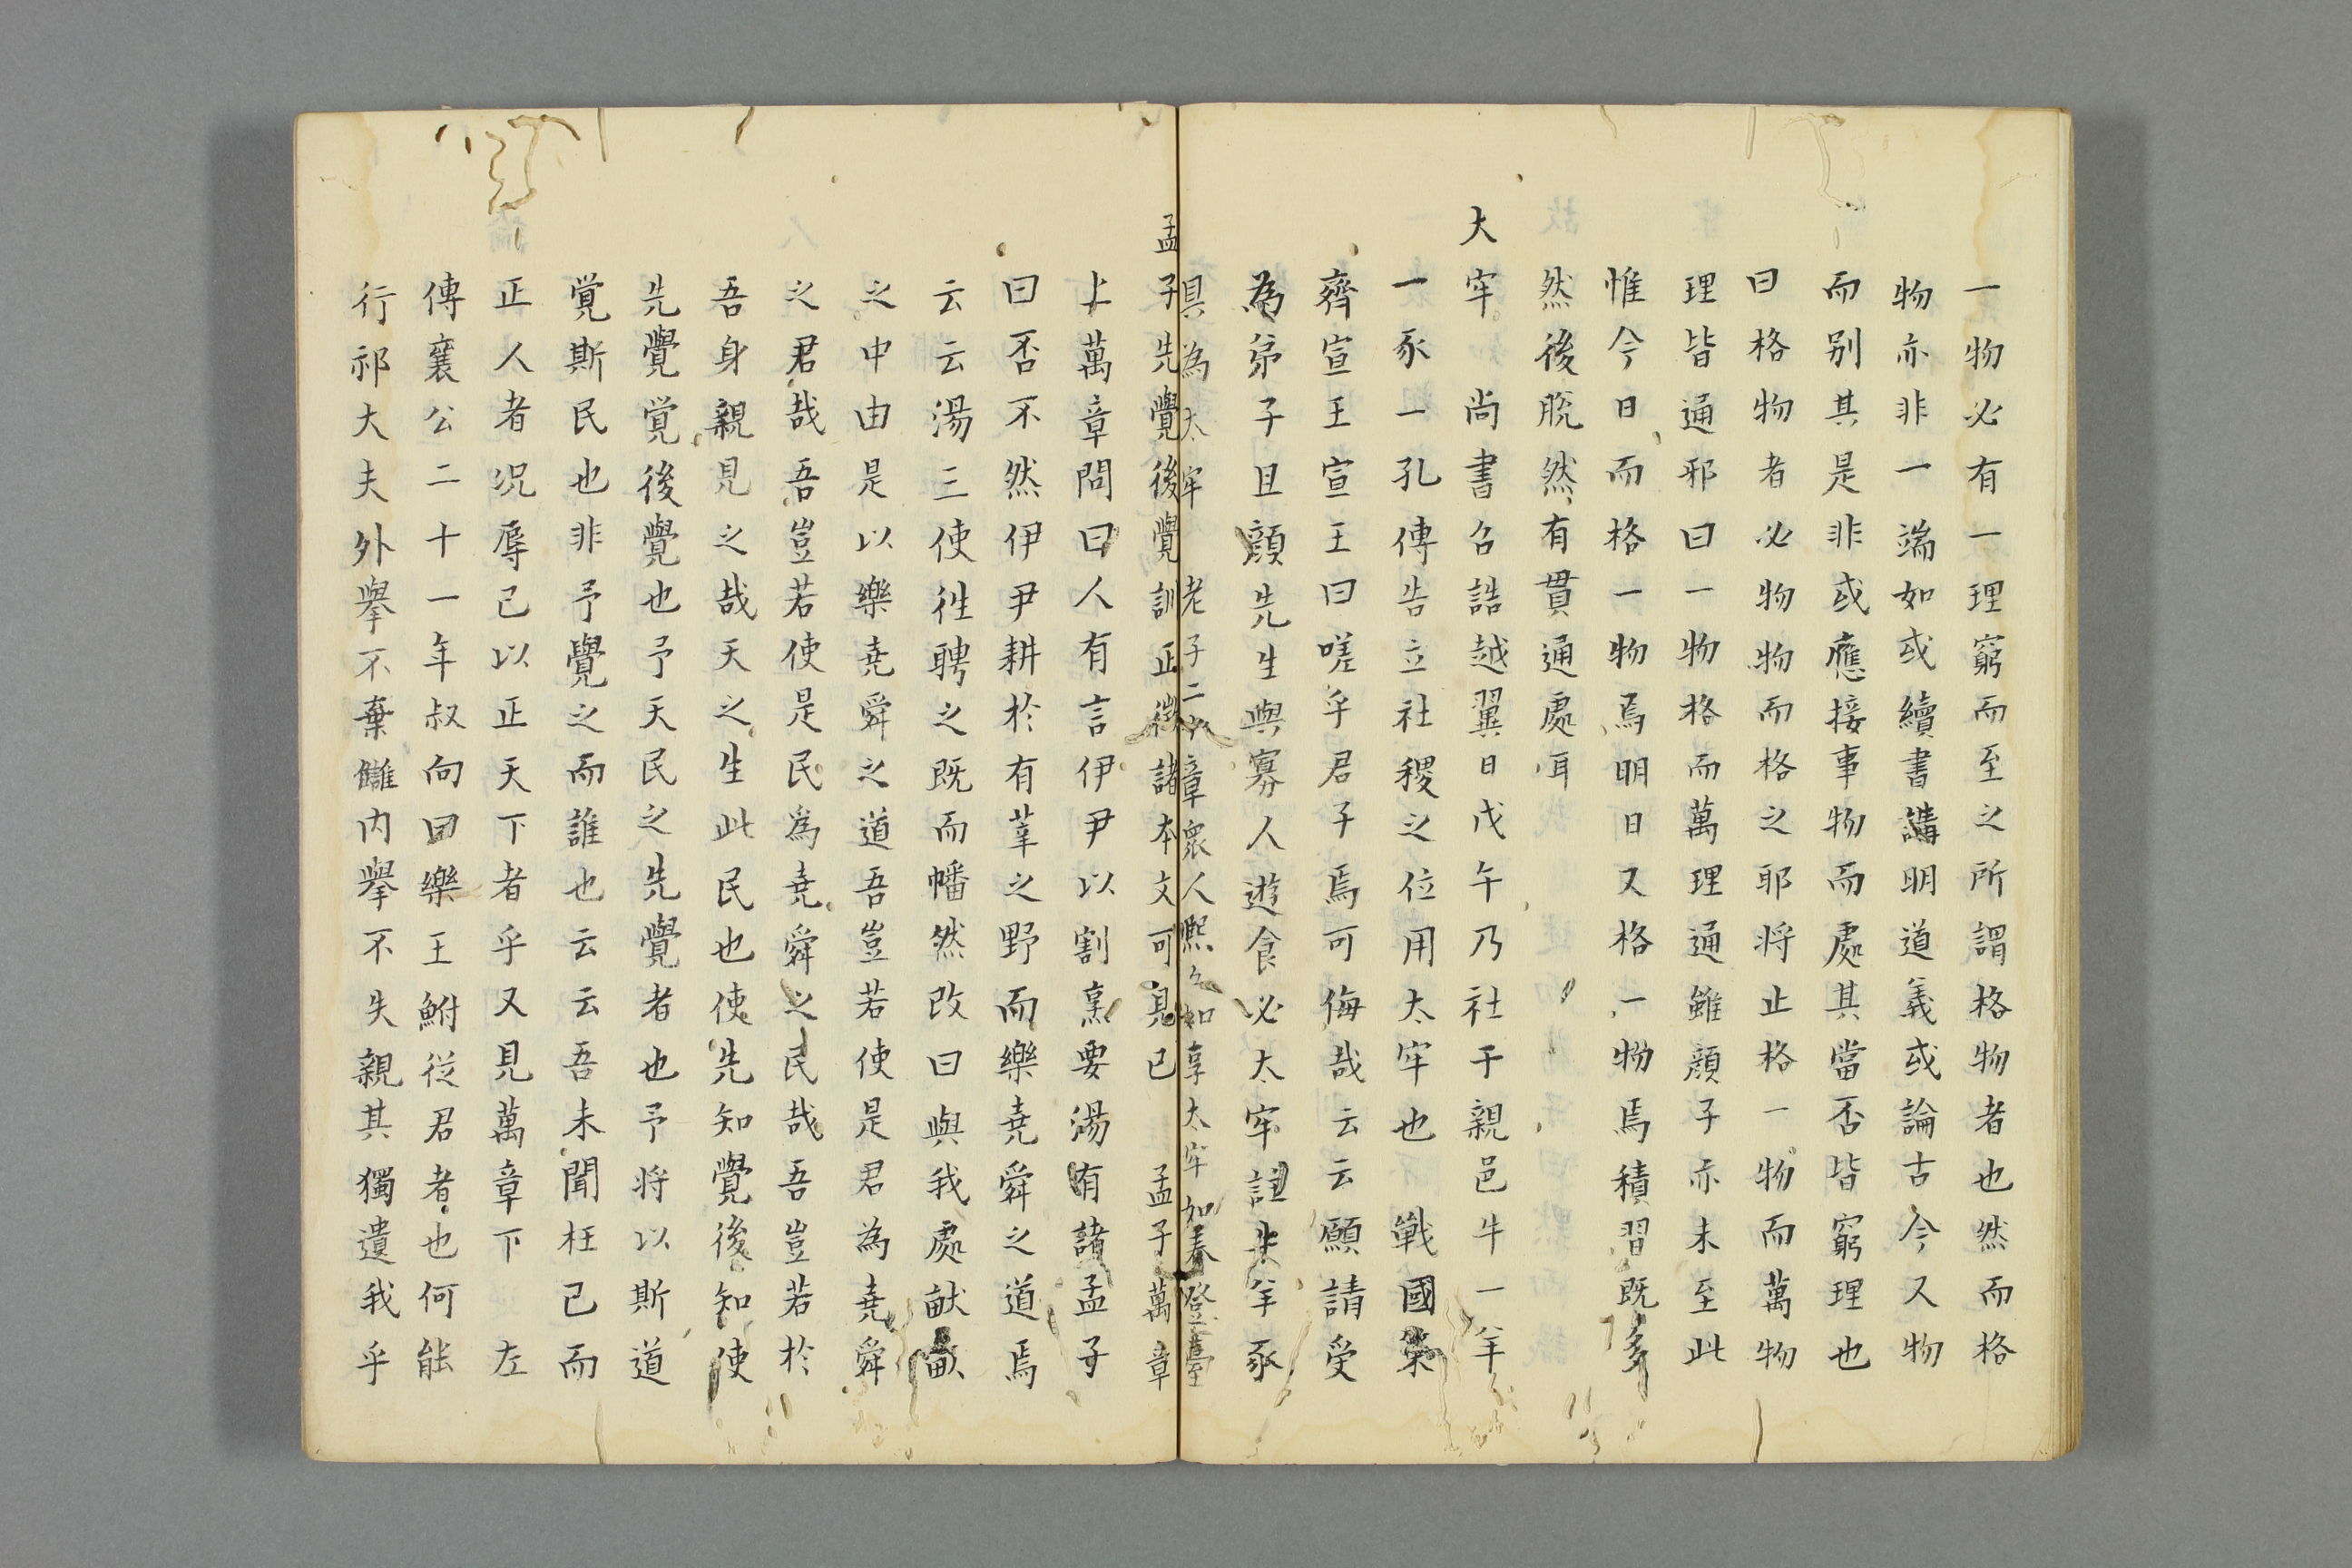 一物必有一理窮而至之所謂格物者也然而格
物亦非一端如或續書講明道義或論古今又物
而别其是非或應接事物而處其當否皆窮理也
曰格物者必物物而格之耶将止格一物而萬物
理皆通邪曰一物格而萬理通雖顔子亦未至此
惟今日而格一物焉明日又格一物焉積習既多
然後脱然有貫通處耳
大牢　尚書召誥越翼日戊午乃社于親邑牛一羊
一豕一孔傳告立社稷之位用太牢也　戦國策
齊宣王宣王曰嗟乎君子焉可侮哉云云願請受
為弟子且顔先生與寡人遊食必太牢註牛羊豕
具為太牢　老子二十章衆人熙々如享太牢如春登臺
孟子先覺後覺訓正徴諸本文可見已　孟子萬章
上萬章問曰人有言伊尹以割烹要湯有諸孟子
曰否不然伊尹耕於有莘之野而樂尭舜之道焉
云云湯三使徃聘之既而幡然改曰與我處畎畝
之中由是以樂尭舜之道吾豈若使是君為尭舜
之君哉吾豈若使是民為尭舜之民哉吾豈若於
吾身親見之哉天之生此民也使先知覺後知使
先覺覚後覺也予天民之先覺者也予将以斯道
覚斯民也非予覺之而誰也云云吾未聞枉己而
正人者况辱己以正天下者乎又見萬章下　左
傳襄公二十一年叔向曰樂王鮒従君者也何能
行祁大夫外擧不棄讎内擧不失親其獨遺我乎